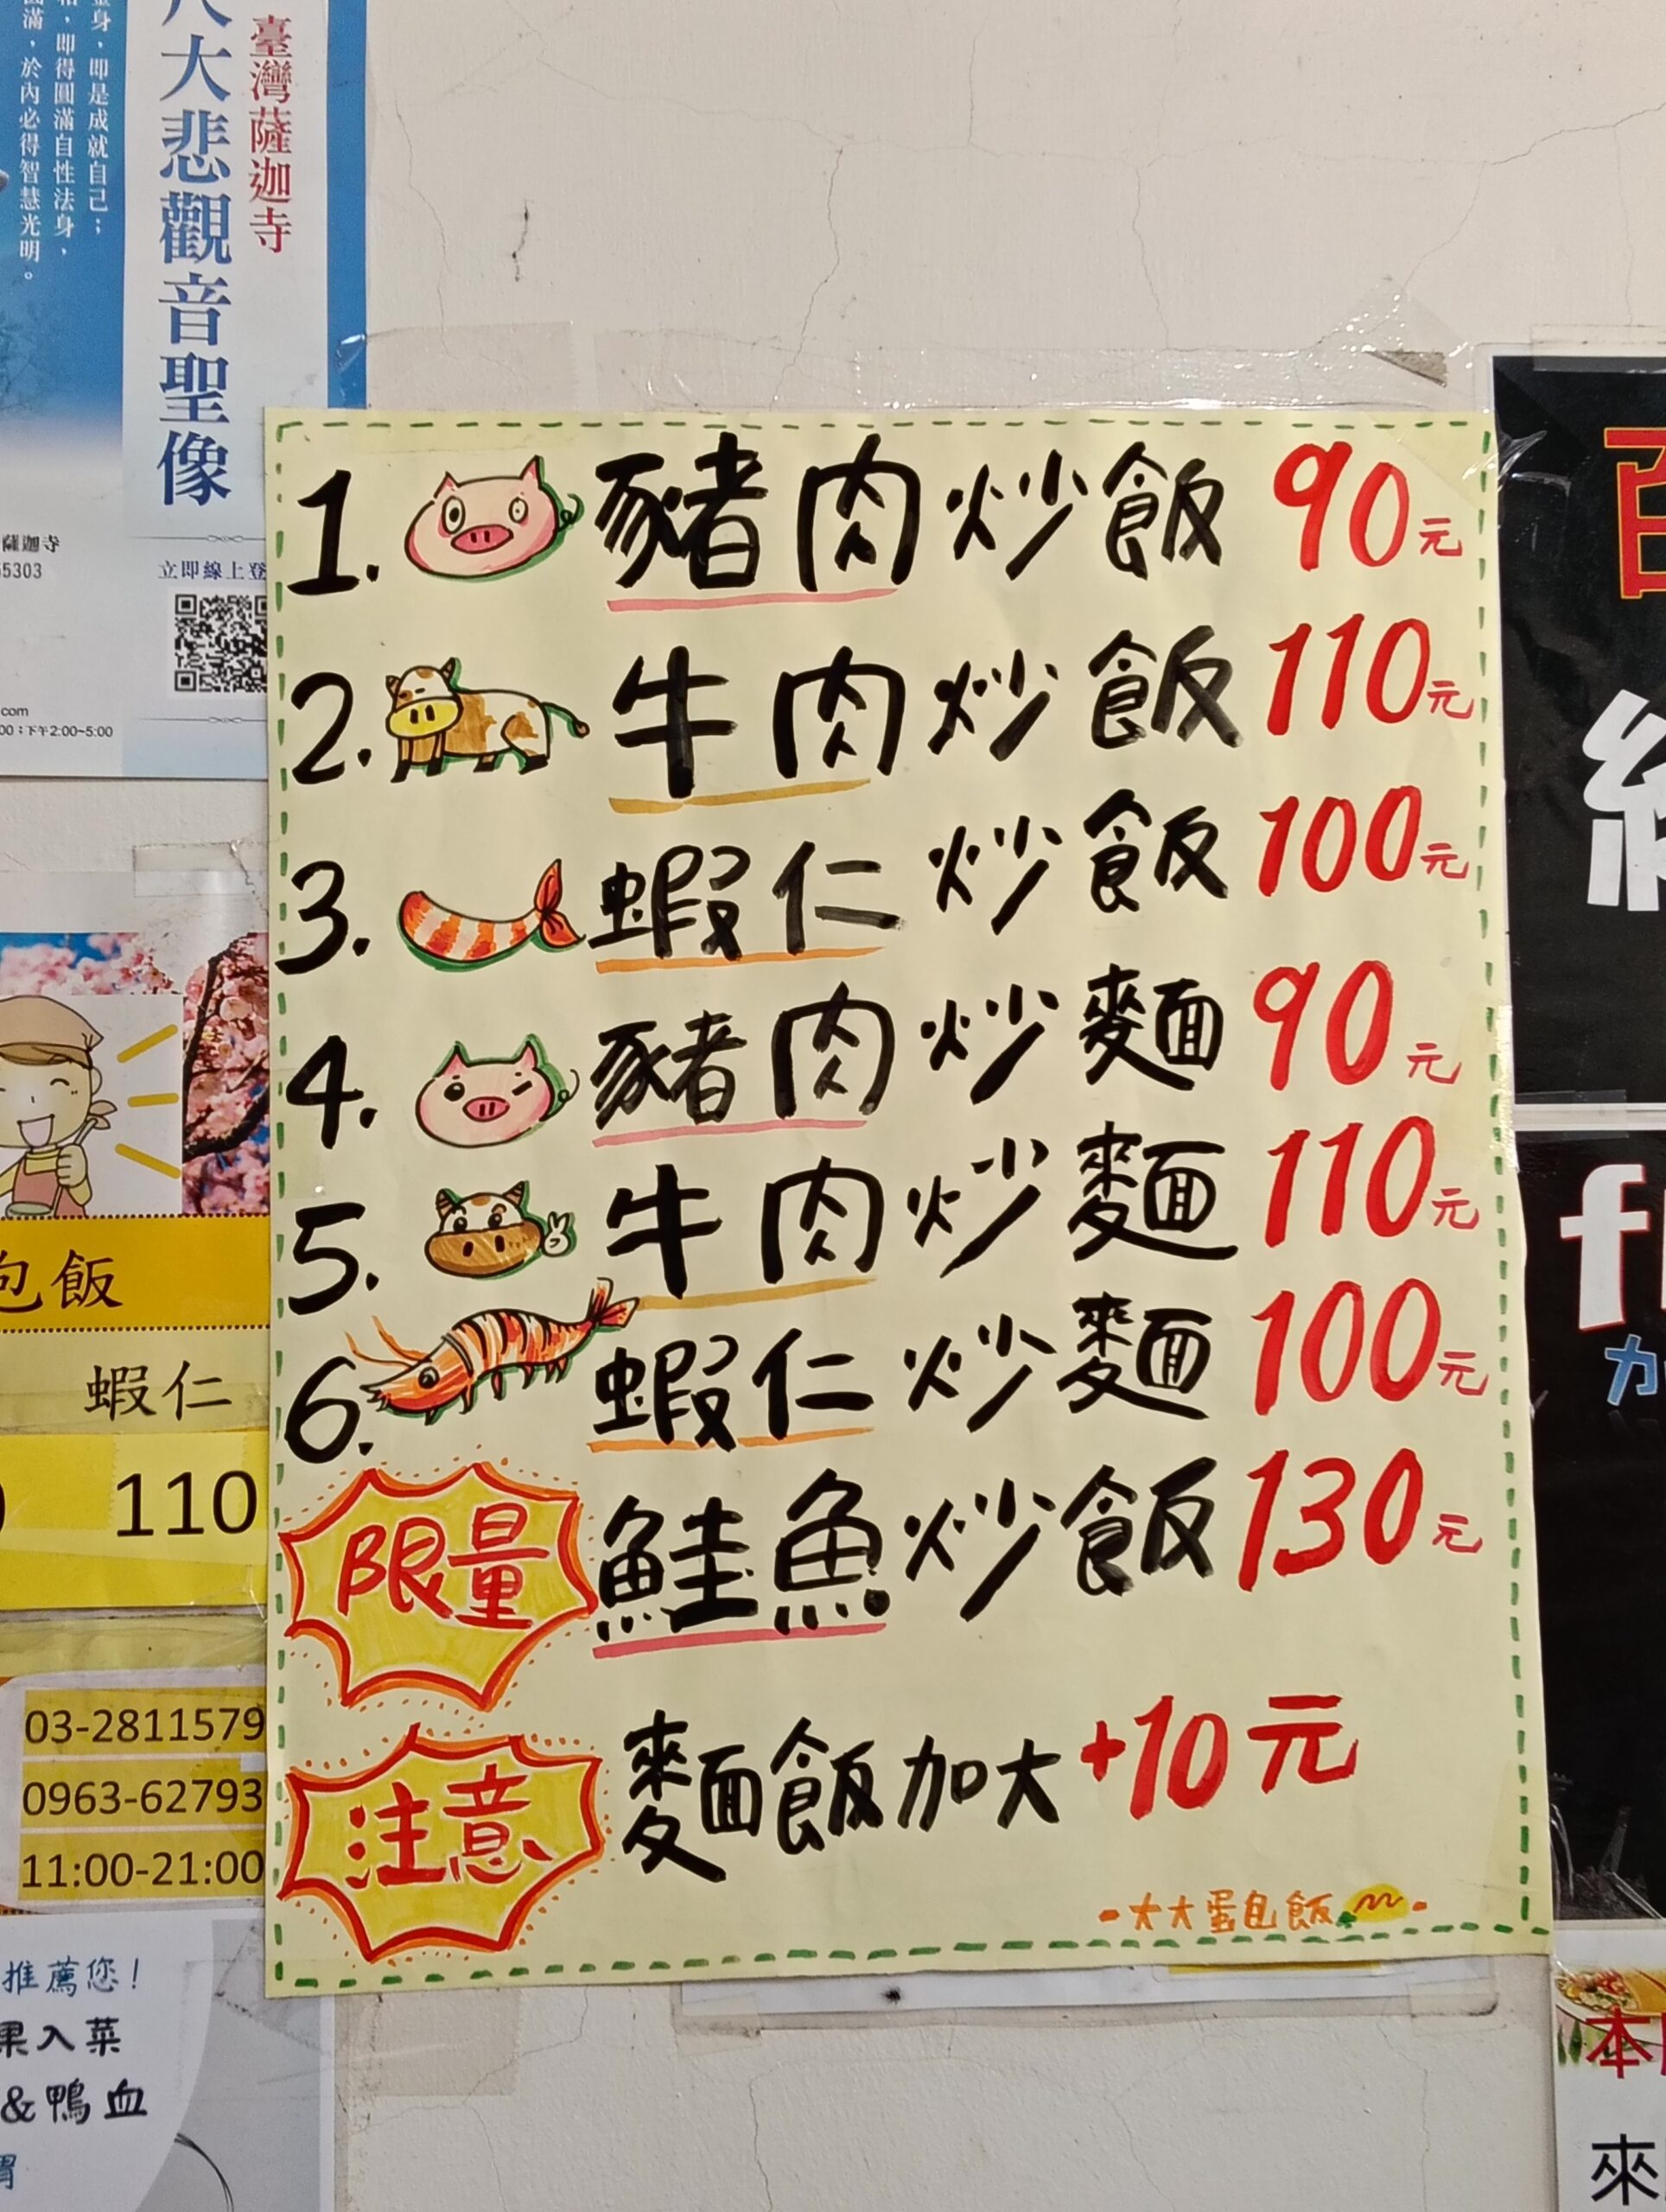 臺灣薩迦寺
大悲觀音聖像
即是成就自己；
，即得圓滿自性法身，
圓滿，於內必得智慧光明。
薩迦寺
5303
立即線上登
.com
00；下午2:00~5:00
1. 豬肉炒飯 90元
2. 牛肉炒飯 110元
3. 蝦仁炒飯 100元
4. 豬肉炒麵 90元
5. 牛肉炒麵 110元
6. 蝦仁炒麵 100元
限量 鮭魚炒飯 130元
注意 麵飯加大 +10元
-大大蛋包飯-
包飯
蝦仁
110
03-2811579
0963-62793
11:00-21:00
推薦您!
果入菜
&鴨血
百
f
加
本
來